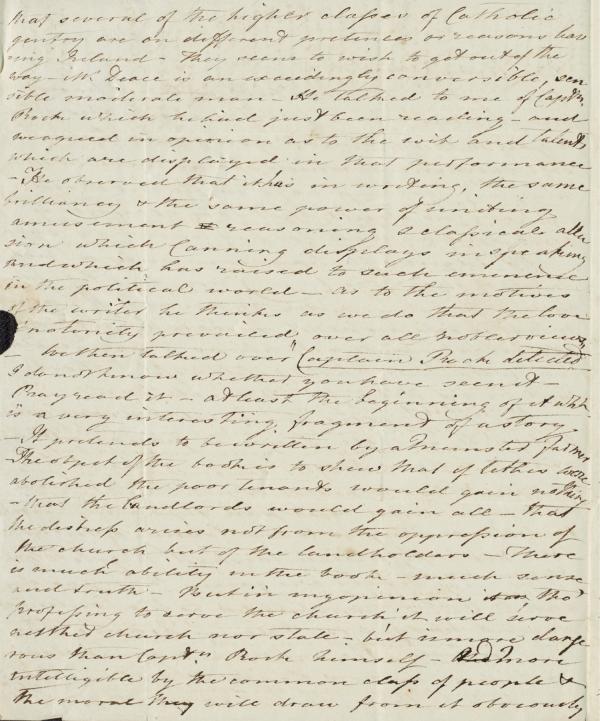 that several of the higher classes of Catholic
gentry are on different pretences or reasons leav
ing Ireland – they seem to wish to get out of the
way – Mr Peace is an exceedingly conversible, sen
sible moderate man – He talked to me of Captn
Rock which he had just been reading – and
we agreed in opinion as to the wit and talents
which are displayed in that performance
– He observed that it has in writing, the same
brilliancy & the same power of uniting
amusement reasoning & classical allu
sion which Canning displays in speaking
and which has raised to such eminence
in the political world – as to the motives
of the writer he thinks as we do that the love
notoriety prevailed over all nobler views
– We then talked over "Captain Rock detected
I do not know whether you have seen it –
Pray read it – at least the beginning of it which
is a very interesting fragment of a story
– It pretends to be written by a Munster farmer
– The object of the book is to shew that if tithes were
abolished the poor tenants would gain nothing
– that the landlords would gain all – that
the distress arises not from the oppression of
the church but of the landholders – There
is much ability in the book – much sense
and truth – But in my opinion tho'
professing to serve the church it will serve
neither church nor state – but is more dange
rous than Captn Rock himself – And more
intelligible by the common class of people &
the moral they will draw from it obviously